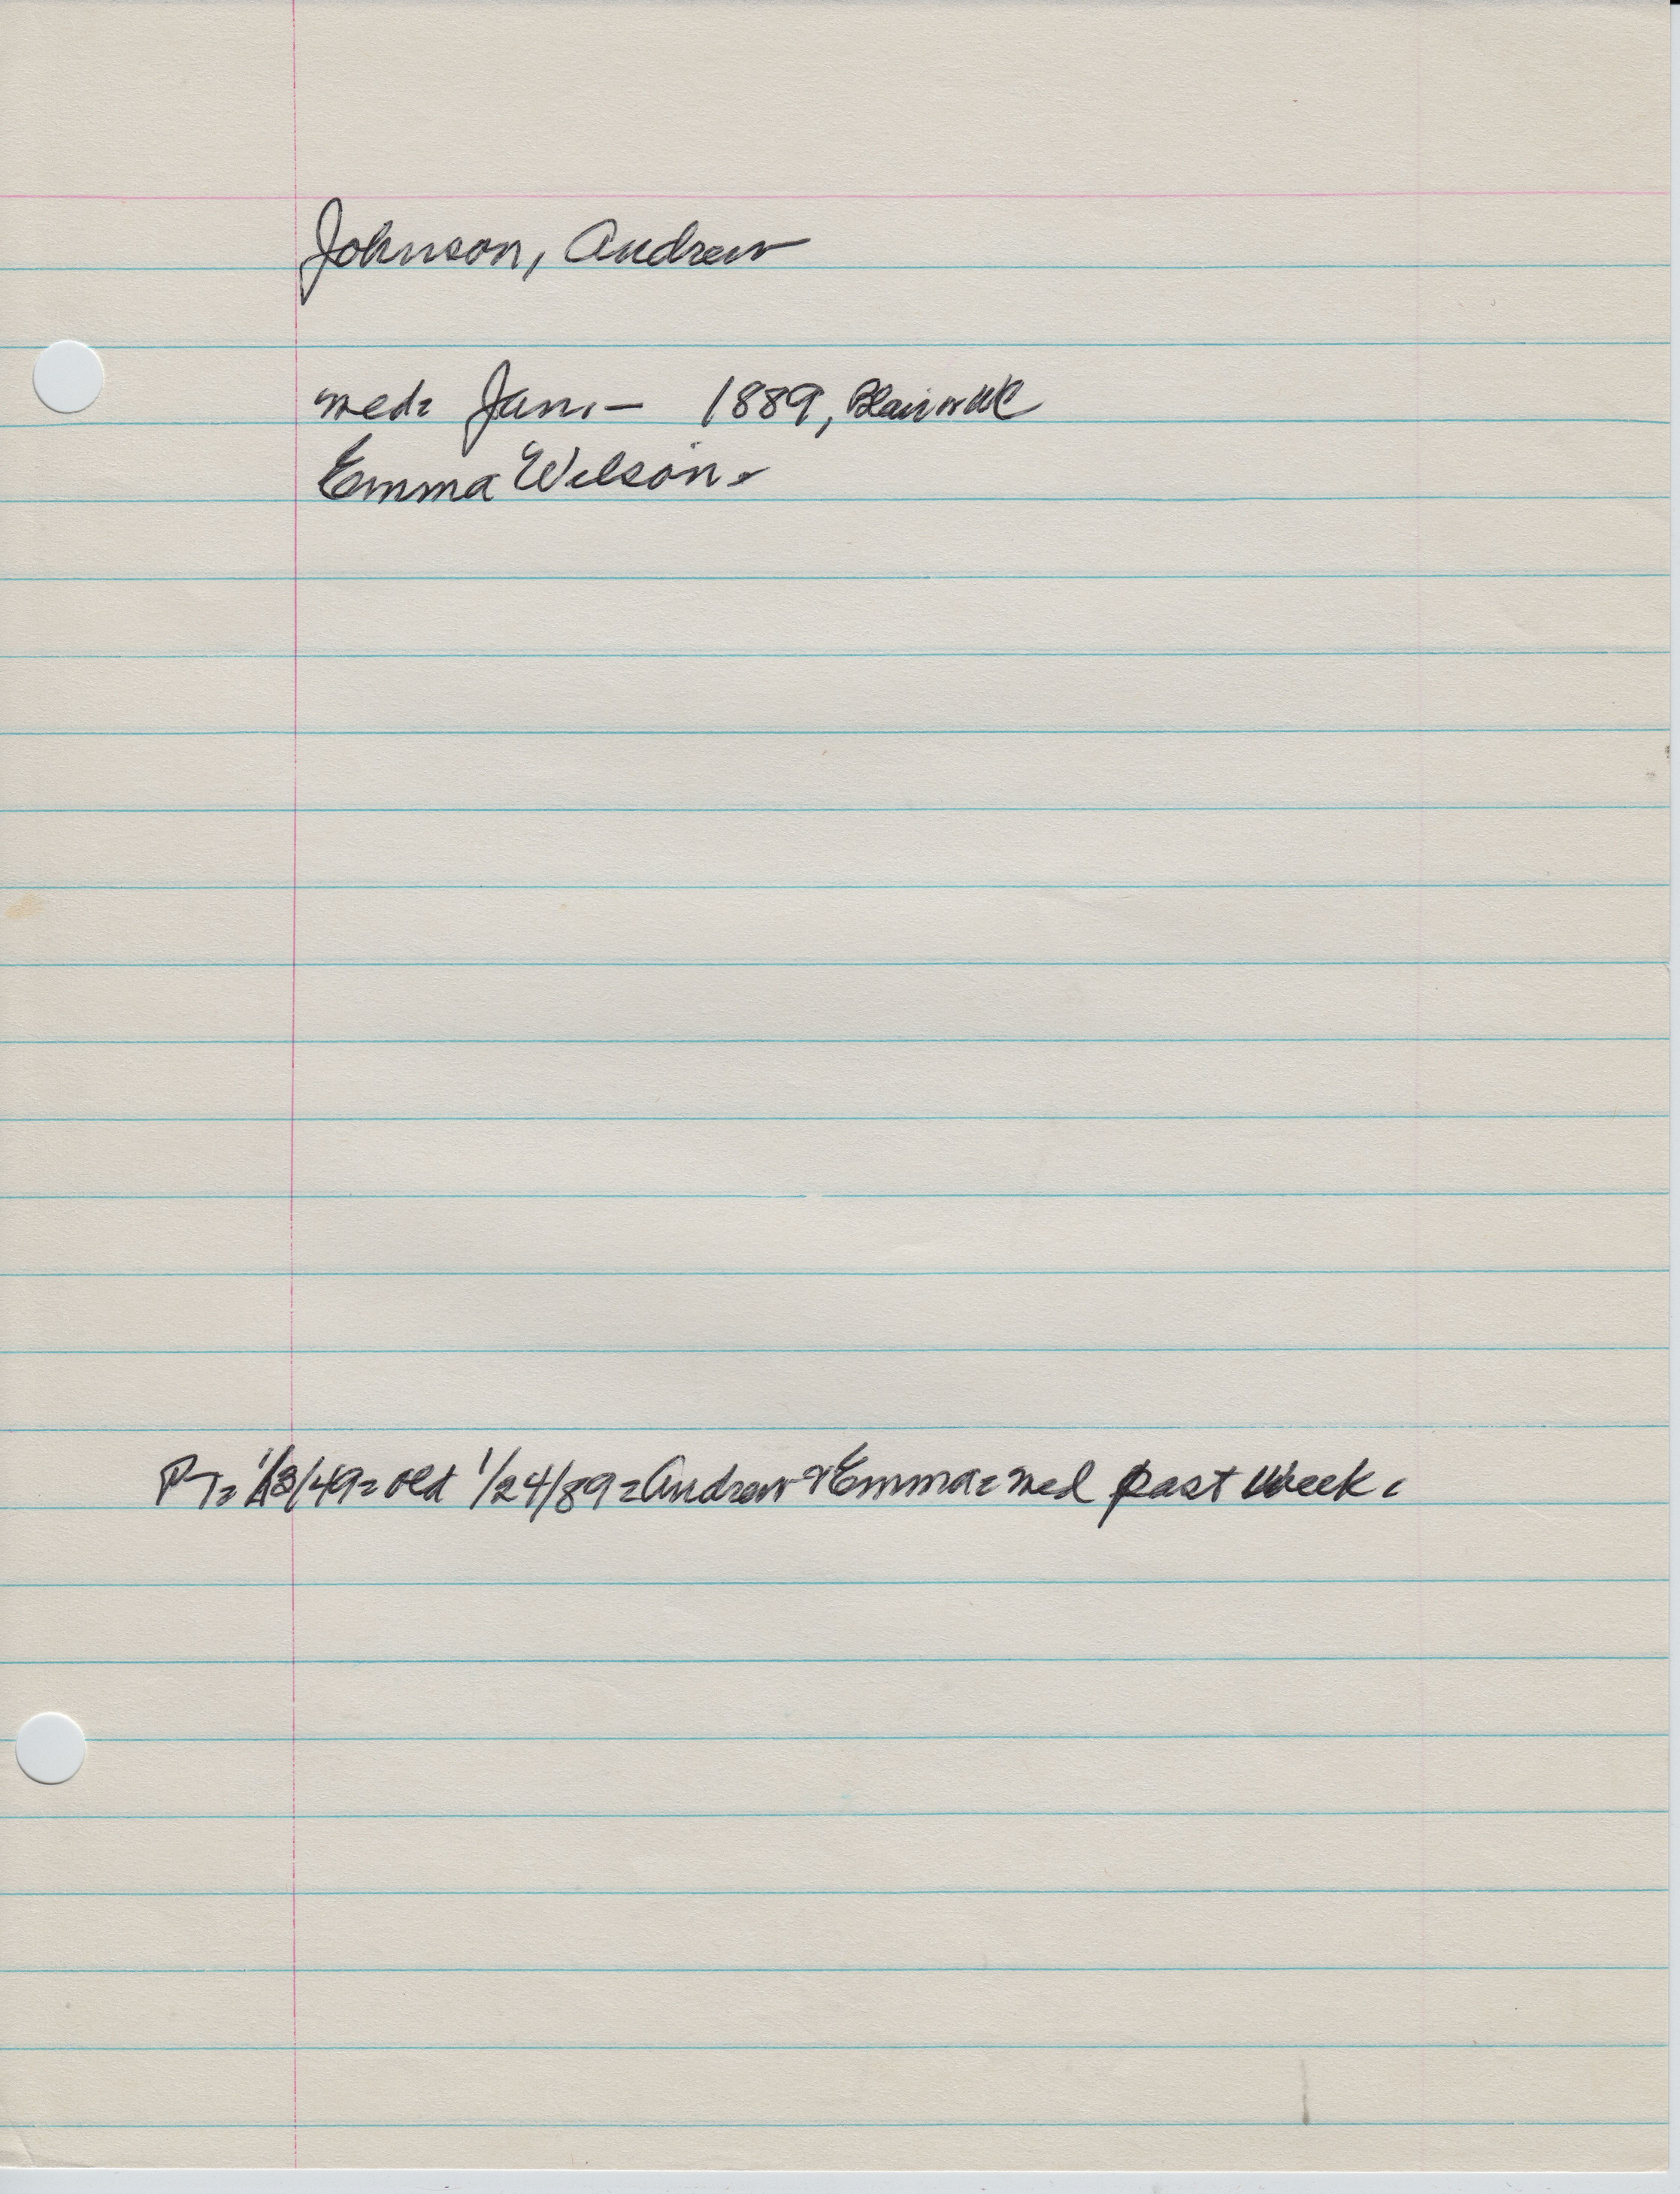 Johnson, Andrew
med= Jan. - 1889, Blair or WC
Emma Wilson.
PT= 1/13/49= old 1/24/89= Andrew & Emma= med past week.